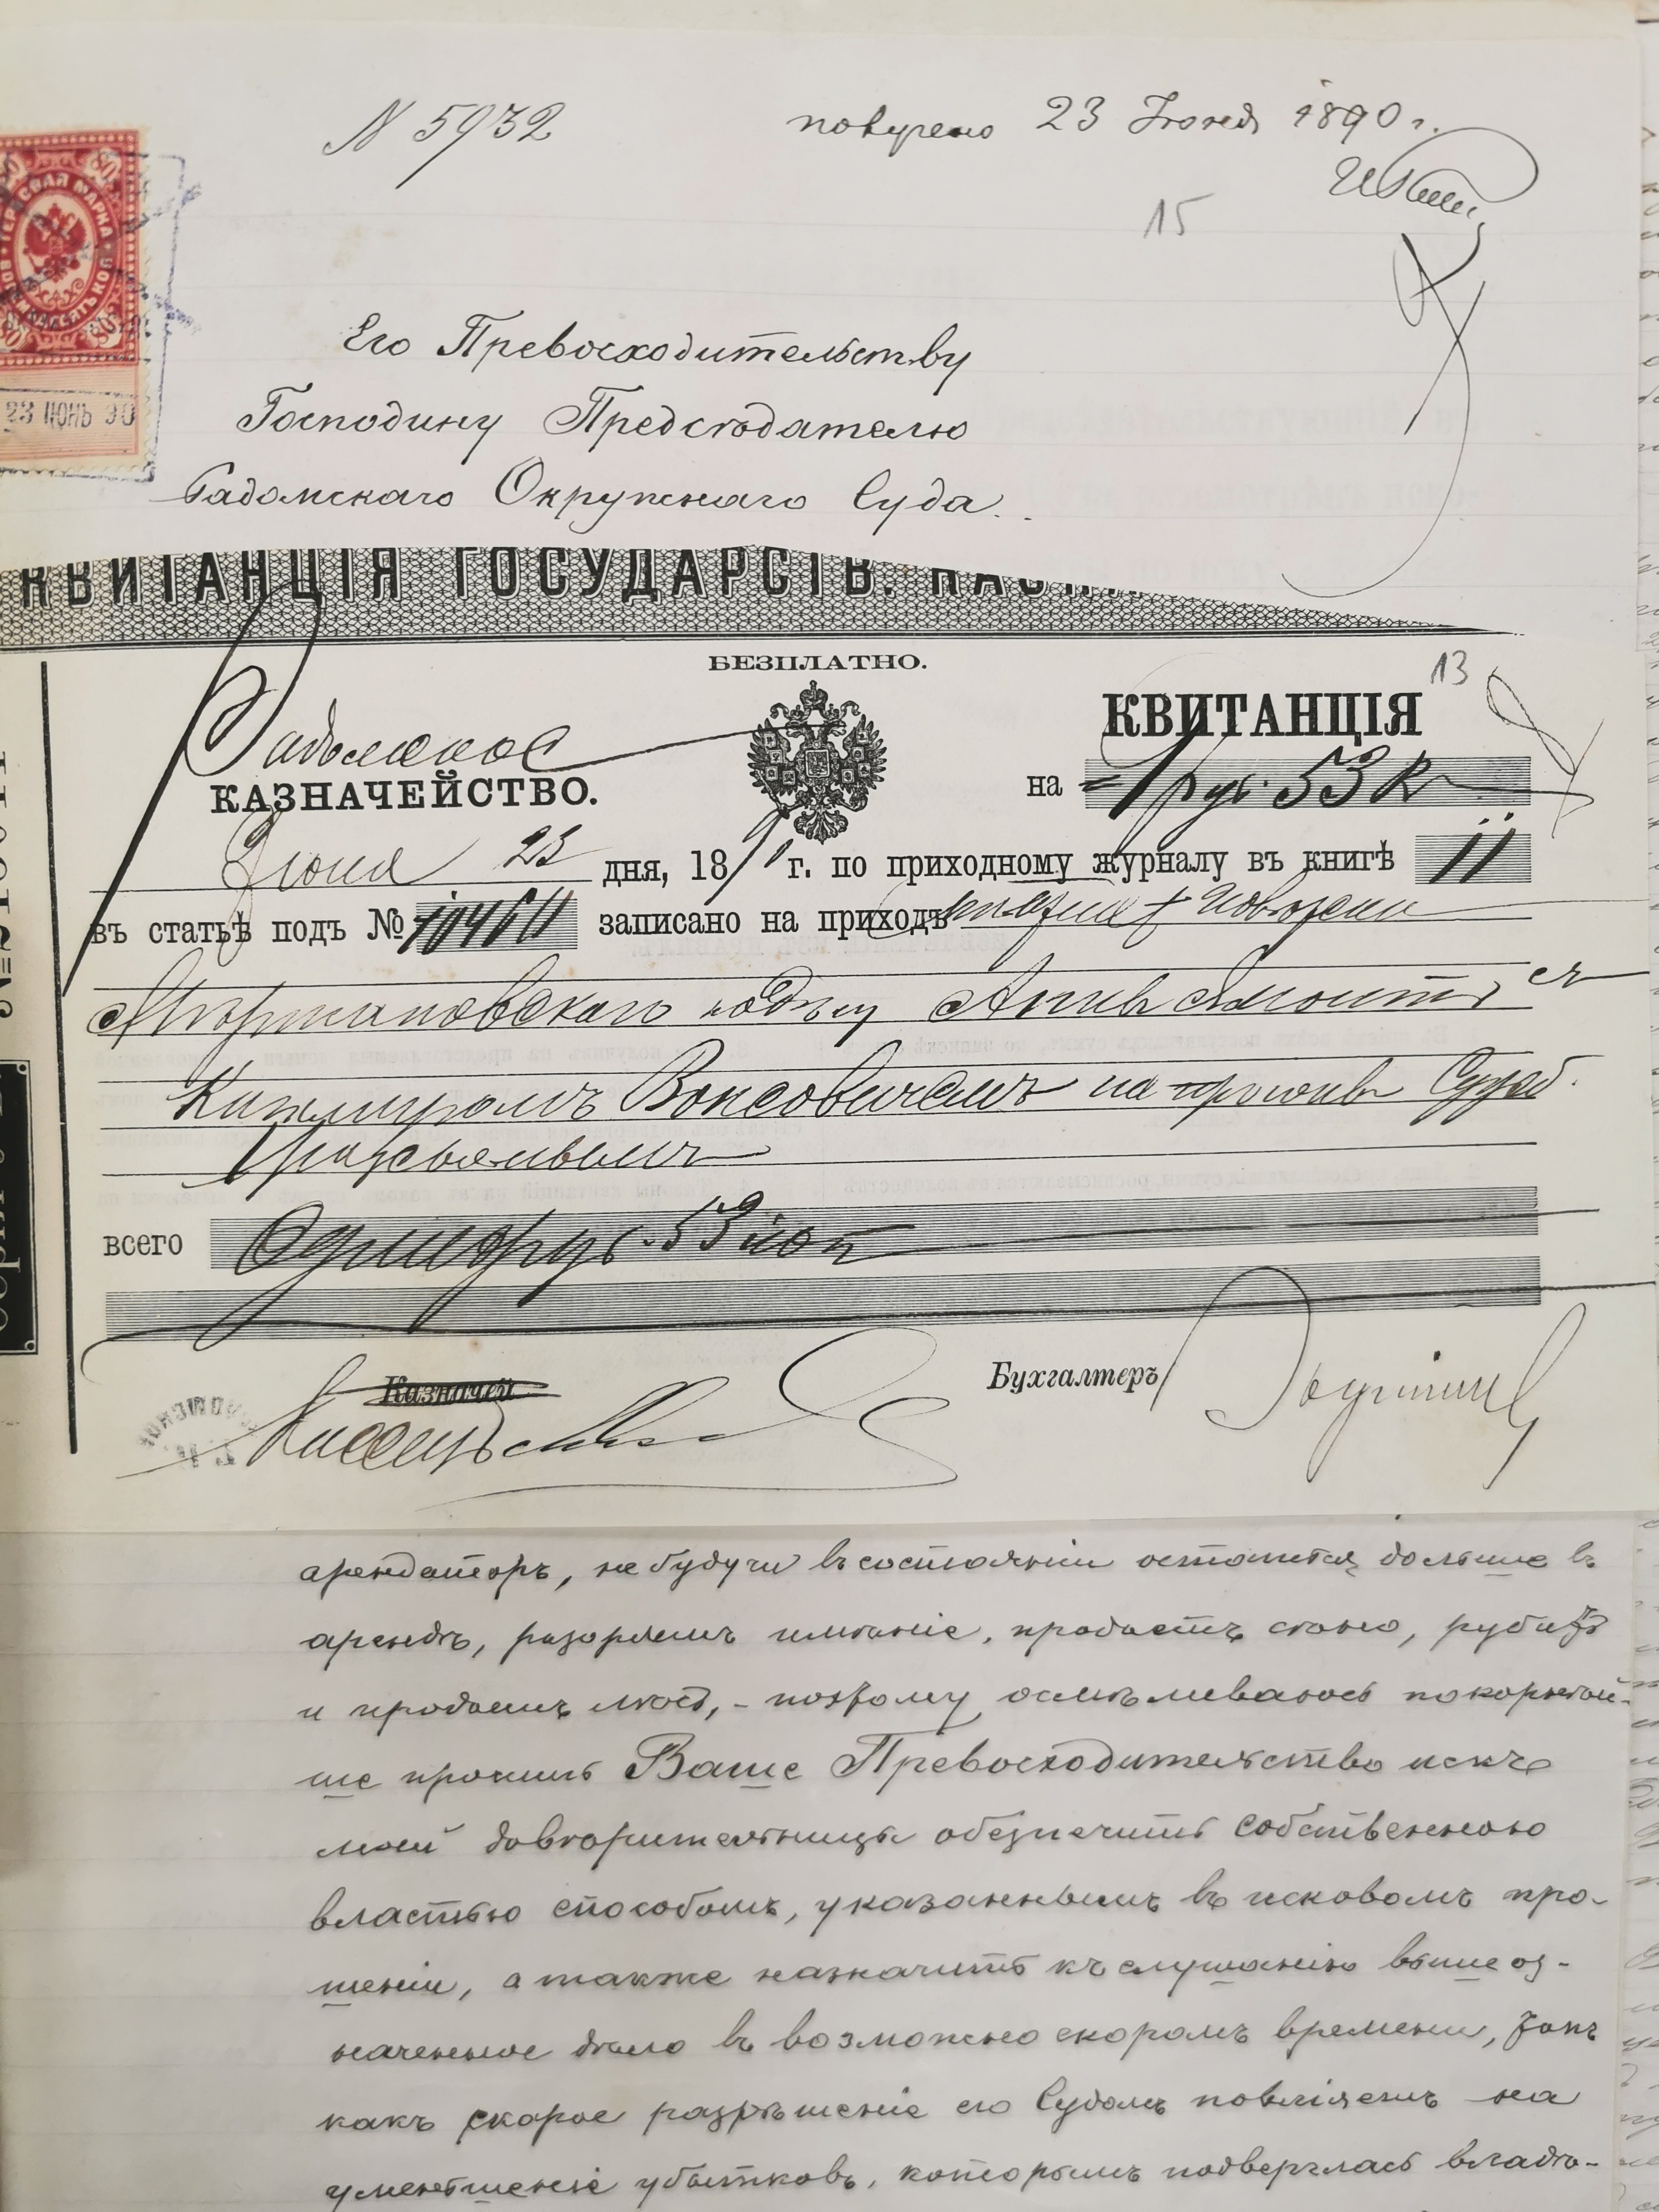 № 5932
получено 23 Іюня 1890 г.
15
23 ІЮНЬ 90
Его Превосходительству
Господину Предсѣдателю
Радомскаго Окружнаго Суда.
КВИТАНЦІЯ ГОСУДАРСТВ.
БЕЗПЛАТНО.
13
Радомское
КАЗНАЧЕЙСТВО.
КВИТАНЦІЯ
на = 1 руб. 53 к
Іюня 23 дня, 189 г. по приходному журналу въ книгѣ 11
въ статьѣ подъ № записано на приходъ
Казимиромъ Вонсовичемъ на Судеб.
всего Одинъ руб. 53 коп
Казначей
Бухгалтеръ
арендаторъ, не будучи въ состояніи остаться дольше въ
арендѣ, разоряетъ имѣніе, продаетъ сѣно, рубитъ
и продаетъ лѣсъ, - поэтому осмѣливаюсь покорнѣй-
ше просить Ваше Превосходительство искъ
моей довѣрительницы обезпечить собственною
властью способомъ, указаннымъ въ исковомъ про-
шеніи, а также назначить къ слушанію вышеоз-
наченное дѣло въ возможно скоромъ времени, такъ
какъ скорое разрѣшеніе его Судомъ повліяетъ на
уменьшеніе убытковъ, которымъ подверглась владѣ-